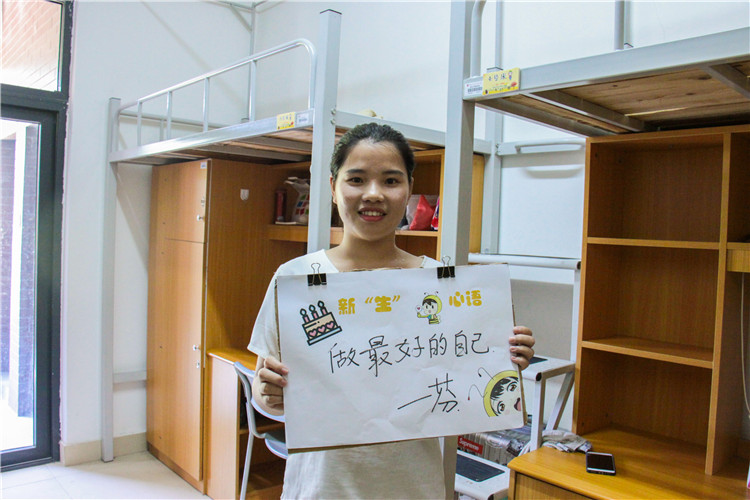 新“生”心语
做最好的自己
一芬.